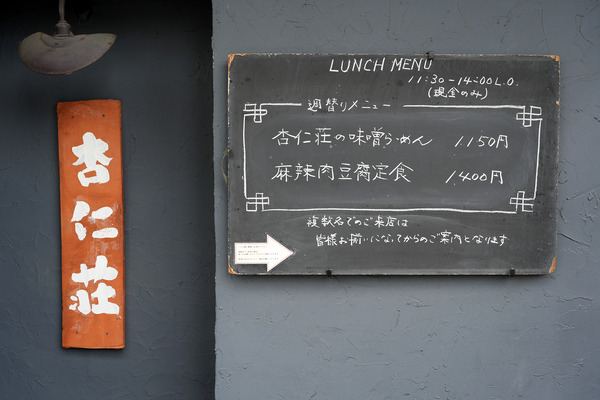 杏仁荘
LUNCH MENU
11:30-14:00L.O.
(現金のみ)
週替りメニュー
杏仁荘の味噌らーめん 1.150円
麻辣肉豆腐定食 1.400円
複数名でのご来店は
皆様お揃いになってからのご案内となります